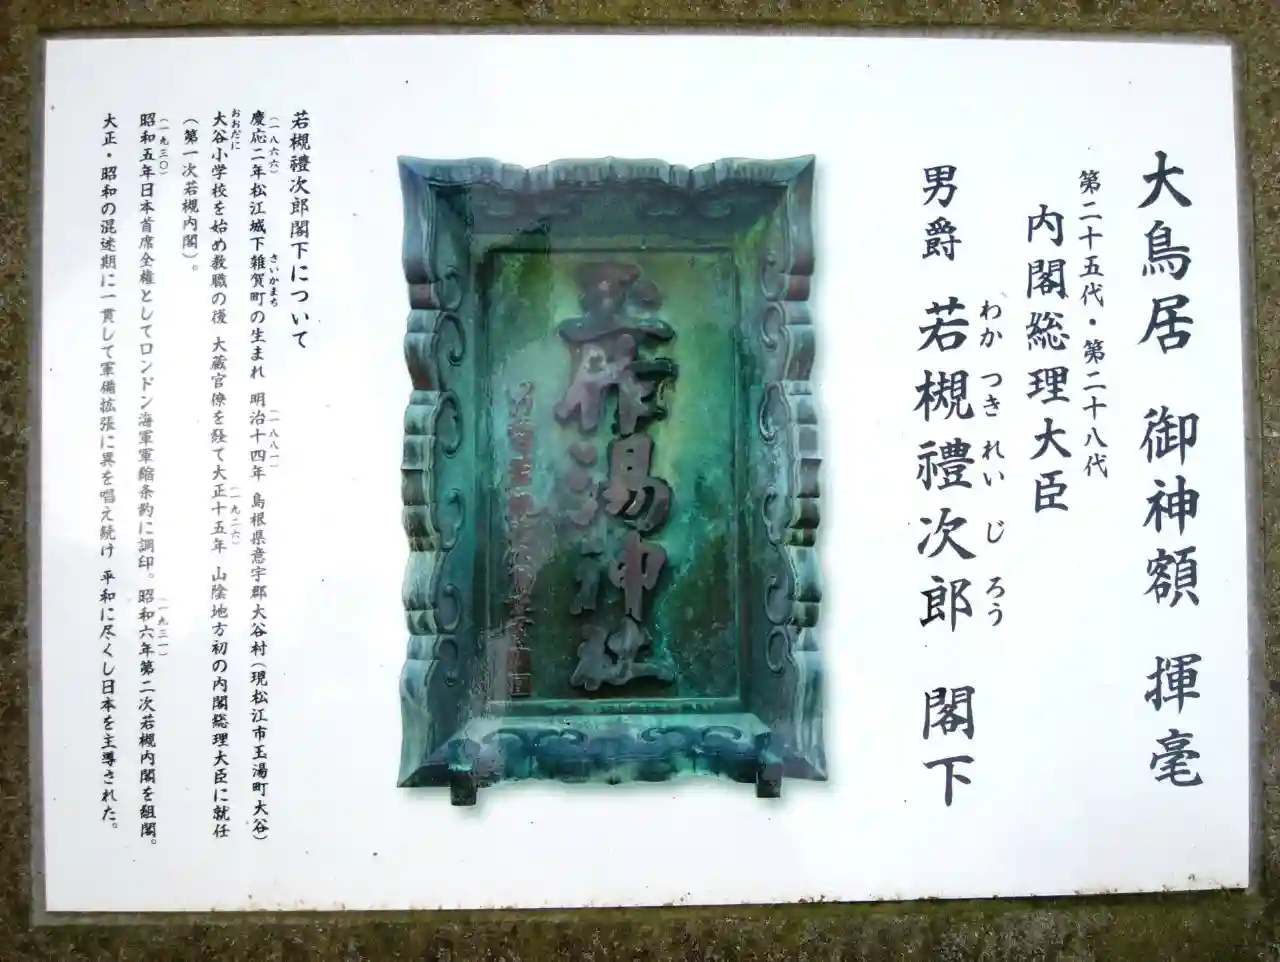 大鳥居　御神額　揮毫
第二十五代・第二十八代
内閣総理大臣
わか つき れい じ ろう
男爵　若槻禮次郎　閣下
玉作湯神社
若槻禮次郎閣下について
(一八六六) さいかまち (一八八一)
慶応二年松江城下雑賀町の生まれ 明治十四年 島根県意宇郡大谷村(現松江市玉湯町大谷)
おおだに (一九二六)
大谷小学校を始め教職の後 大蔵官僚を経て大正十五年 山陰地方初の内閣総理大臣に就任
(第一次若槻内閣)。
(一九三〇) (一九三一)
昭和五年日本首席全権としてロンドン海軍軍縮条約に調印。昭和六年第二次若槻内閣を組閣。
大正・昭和の混迷期に一貫して軍備拡張に異を唱え続け 平和に尽くし日本を主導された。